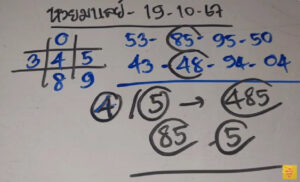 หวยมาเลย์-19-10-67
0
3 4 5
8 9
53-85-95-50
43-48-94-04
4 / 5 → 485
85 5